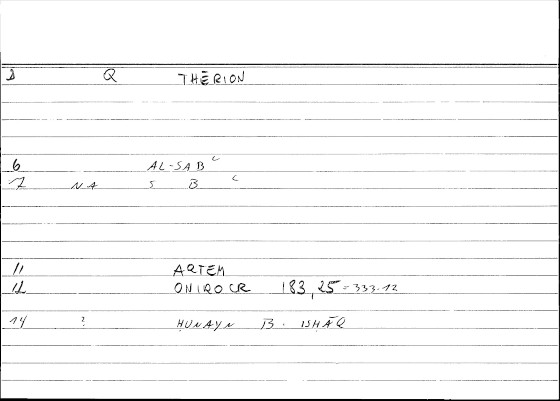 D Q THĒRION
6 AL-SABʿ
7 NA S B ʿ
11 ARTEM
12 ONIROCR 183,25 = 333.12
14 ? ḤUNAYN B. ISḤĀQ